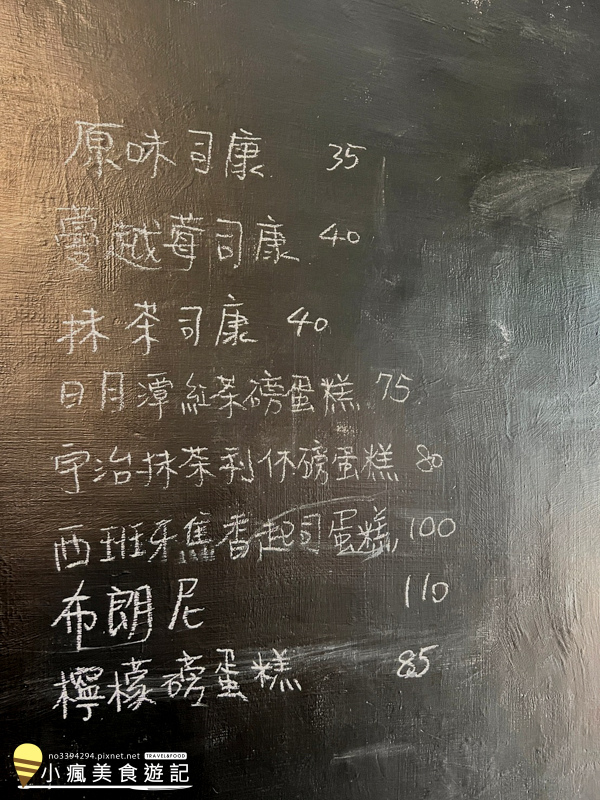 原味司康 35
蔓越莓司康 40
抹茶司康 40
日月潭紅茶磅蛋糕 75
宇治抹茶利休磅蛋糕 80
西班牙焦香起司蛋糕 100
布朗尼 110
檸檬磅蛋糕 85
no3394294.pixnet.net TRAVEL&FOOD
小瘋美食遊記